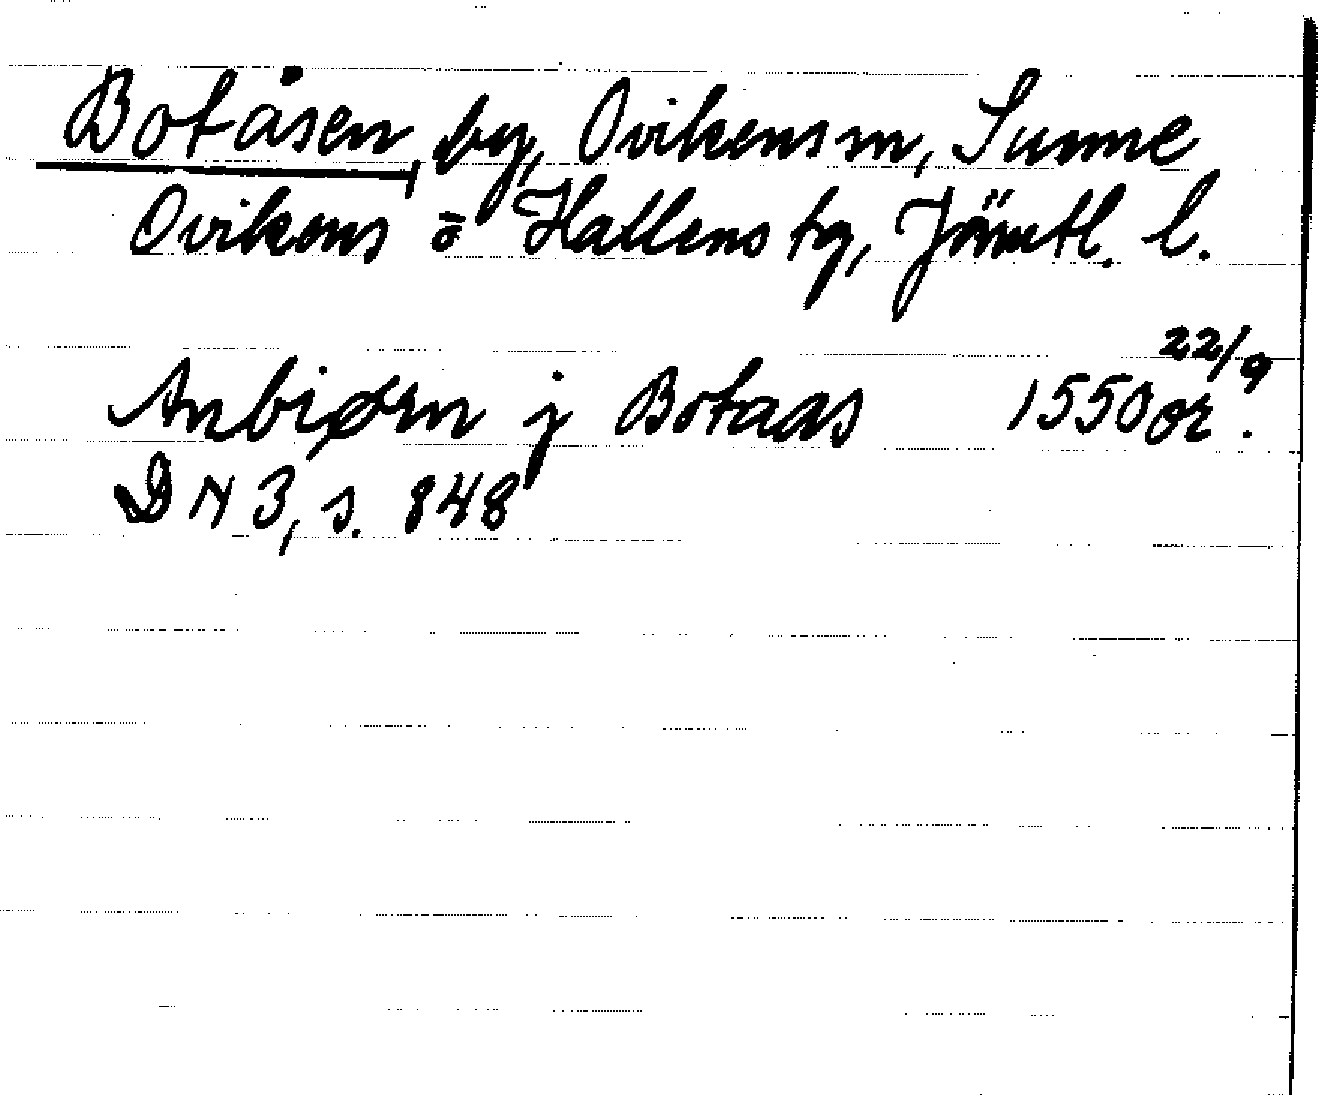 Botåsen, by, Ovikens sn, Sunne
Ovikens o Hallens tg, Jämtl. l.
Anbiørn j Botaas 1550 22/9 or.
DN 3, s. 848